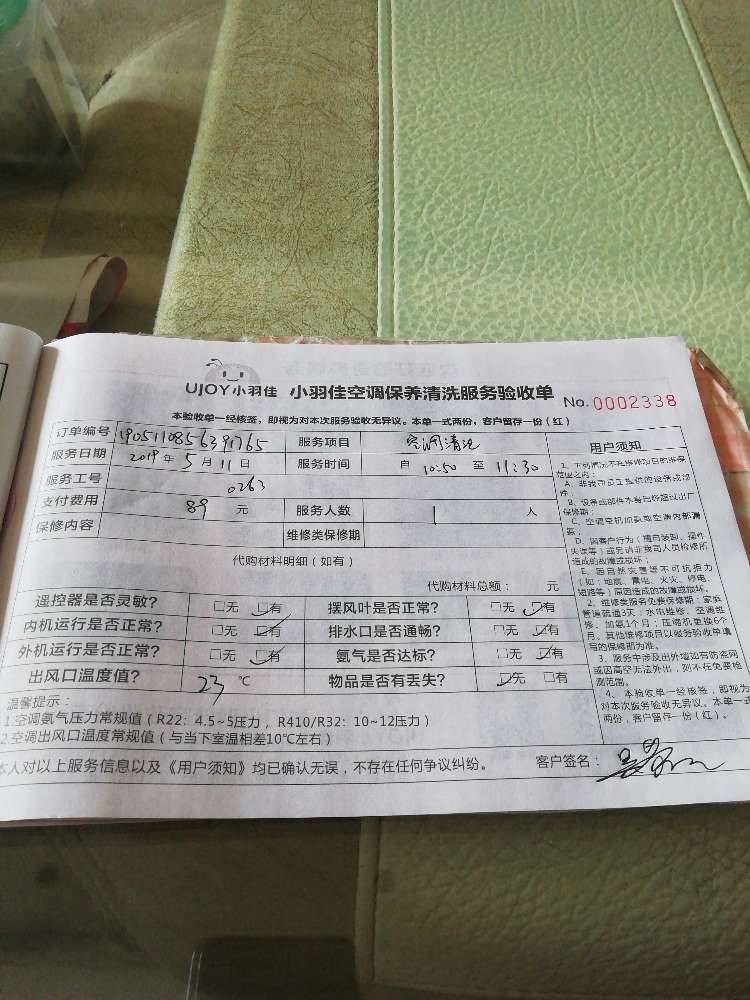 UJOY小羽佳 小羽佳空调保养清洗服务验收单 No. 0002338
本验收单一经核签，即视为对本次服务验收无异议。本单一式两份，客户留存一份（红）
订单编号 服务项目 空调清洗
服务日期 2019年5月11日 服务时间 自 10:50 至 11:30
服务工号 0263
支付费用 89 元 服务人数 1 人
保修内容 维修类保修期
代购材料明细（如有）
代购材料总额： 元
遥控器是否灵敏？ □无 □有 摆风叶是否正常？ □无 □有
内机运行是否正常？ □无 □有 排水口是否通畅？ □无 □有
外机运行是否正常？ □无 □有 氨气是否达标？ □无 □有
出风口温度值？ 23 ℃ 物品是否有丢失？ □无 □有
温馨提示：
1.空调氨气压力常规值（R22：4.5~5压力，R410/R32：10~12压力）
2.空调出风口温度常规值（与当下室温相差10℃左右）
本人对以上服务信息以及《用户须知》均已确认无误，不存在任何争议纠纷。 客户签名：
用户须知
1、下列情况不在维修项目的维保
范围之内：
A、非我司员工提供的设备或部
件；
B、设备或部件本身已经超过出厂
保修期；
C、空调空机加氨或空调内部漏
氨；
D、因客户行为（擅自装卸、操作
失误等）或已请非我司人员检修所
造成的故障或损坏；
E、因自然灾害等不可抗拒力
（如：地震、雷电、火灾、停电、
堵路等）原因造成的故障或损坏。
2、维修类服务免费保修期：家庭
管道疏通3天；水电维修、空调维
修、加氨1个月；压缩机更换6个
月。其他维修项目以服务验收单填
写的保修期为准。
3、服务中涉及出外墙如有防盗网
或因高空无法外出，则不在免费检
测范围。
4、本验收单一经核签，即视为
对本次服务验收无异议。本单一式
两份，客户留存一份（红）。